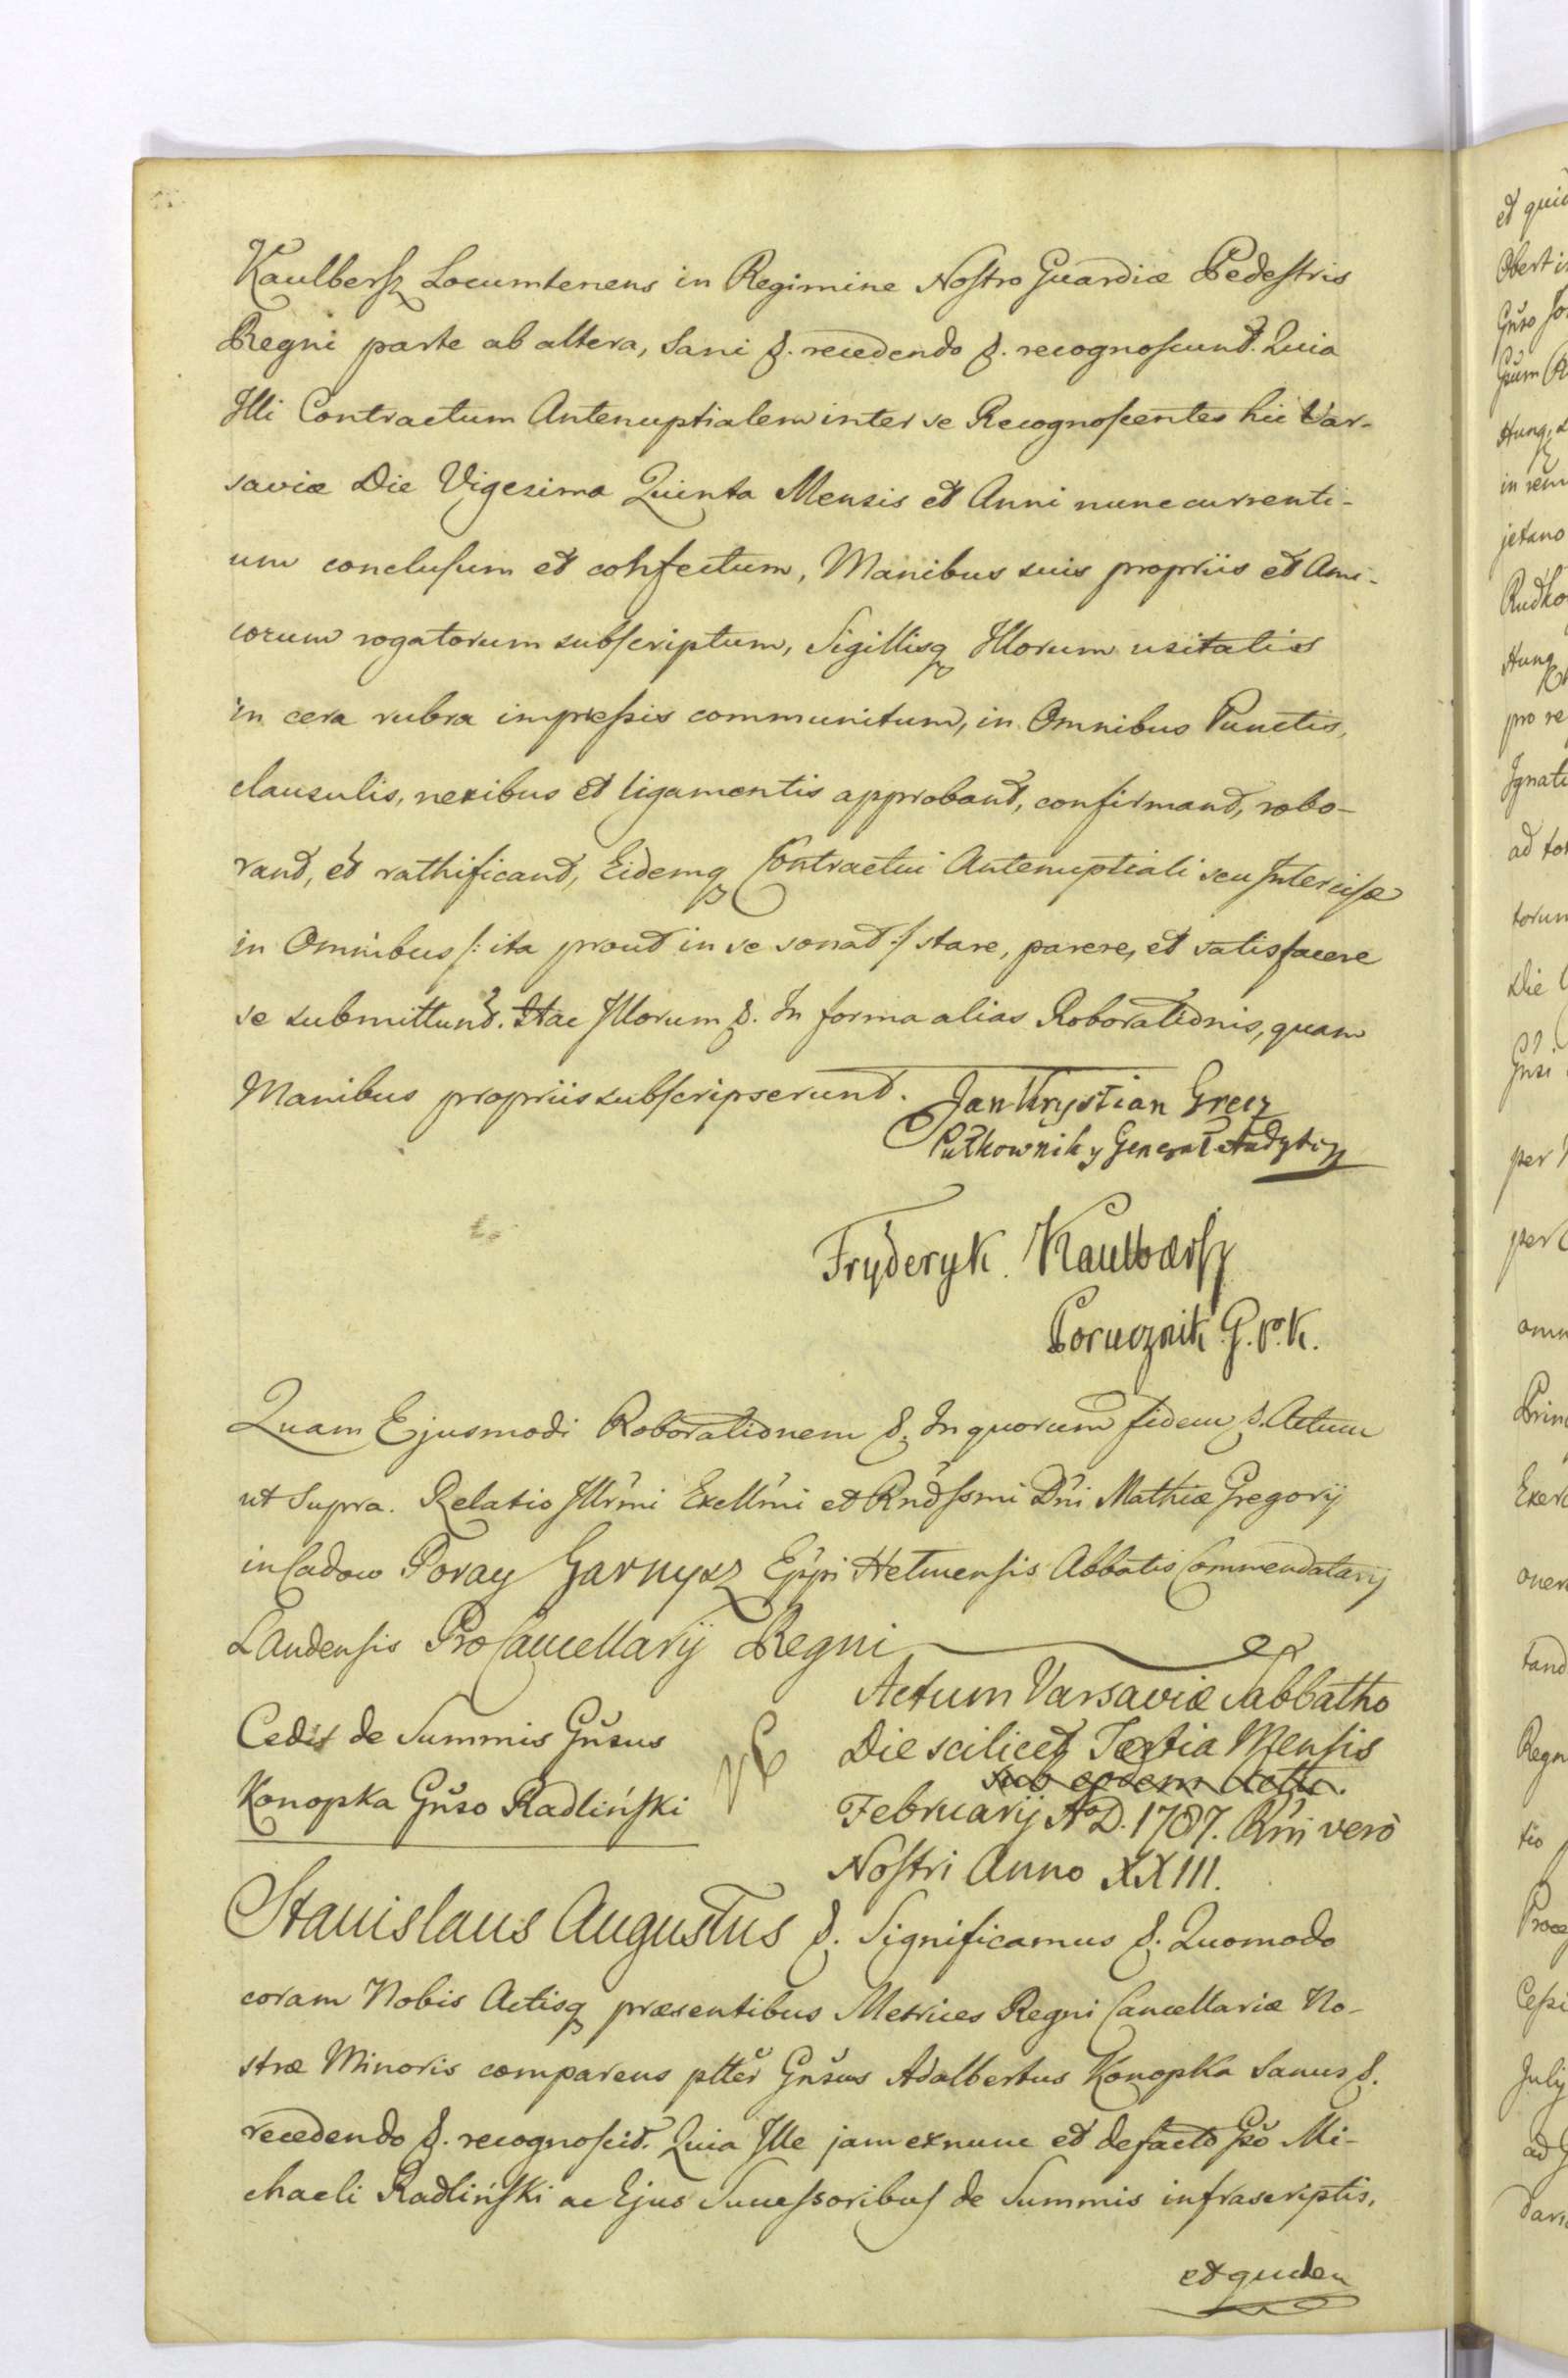 Kaulbersz Locumtenens in Regimine Nostro Guardiæ Pedestris
Regni parte ab altera, Sani &. recedendo &. recognoscunt. Quia
Illi Contractum Antenuptialem inter se Recognoscentes hic Var-
saviæ Die Vigesima Quinta Mensis et Anni nunc currenti-
um conclusum et confectum, Manibus suis propriis et Ami-
corum rogatorum subscriptum, Sigillisq Illorum usitatis
in cera rubra impressis communitum, in Omnibus Punctis,
clausulis, nexibus et ligamentis approband, confirmand, robo-
rand, et rathificand, Eidemq Contractui Antenuptiali seu Intercisæ
in Omnibus /: ita prout in se sonat :/ stare, parere, et satisfacere
se submittunt. Hac Illorum &. In forma alias Roborationis, quam
Manibus propriis subscripserunt. Jan Krystian Grecz
Pułkownik y Generał Audytor
Fryderyk Kaulbarsz
Porucznik G. P. K.
Quam Ejusmodi Roborationem &. In quorum fidem &. Actum
ut Supra. Relatio Illrmi Excllmi et Rndssmi Dni Mathiæ Gregorij
in Cadow Poray Garnysz Eppi Helmensis Abbatis Commendatarij
Landensis ProCancellarij Regni
Actum Varsaviæ Sabbatho
Cedit de Summis Gnsus
Die scilicet Tertia Mensis
Konopka Gnso Radliński
Februarij Ao D. 1787. Rni verò
Nostri Anno XXIII.
Stanislaus Augustus &. Significamus &. Quomodo
coram Nobis Actisq præsentibus Metrices Regni Cancellariæ No-
stræ Minoris comparens ptter Gnsus Adalbertus Konopka Sanus &.
recedendo &. recognoscit. Quia Ille jam ex nunc et de facto Gso Mi-
chaeli Radliński ac Ejus Successoribus de Summis infrascriptis,
et quidem